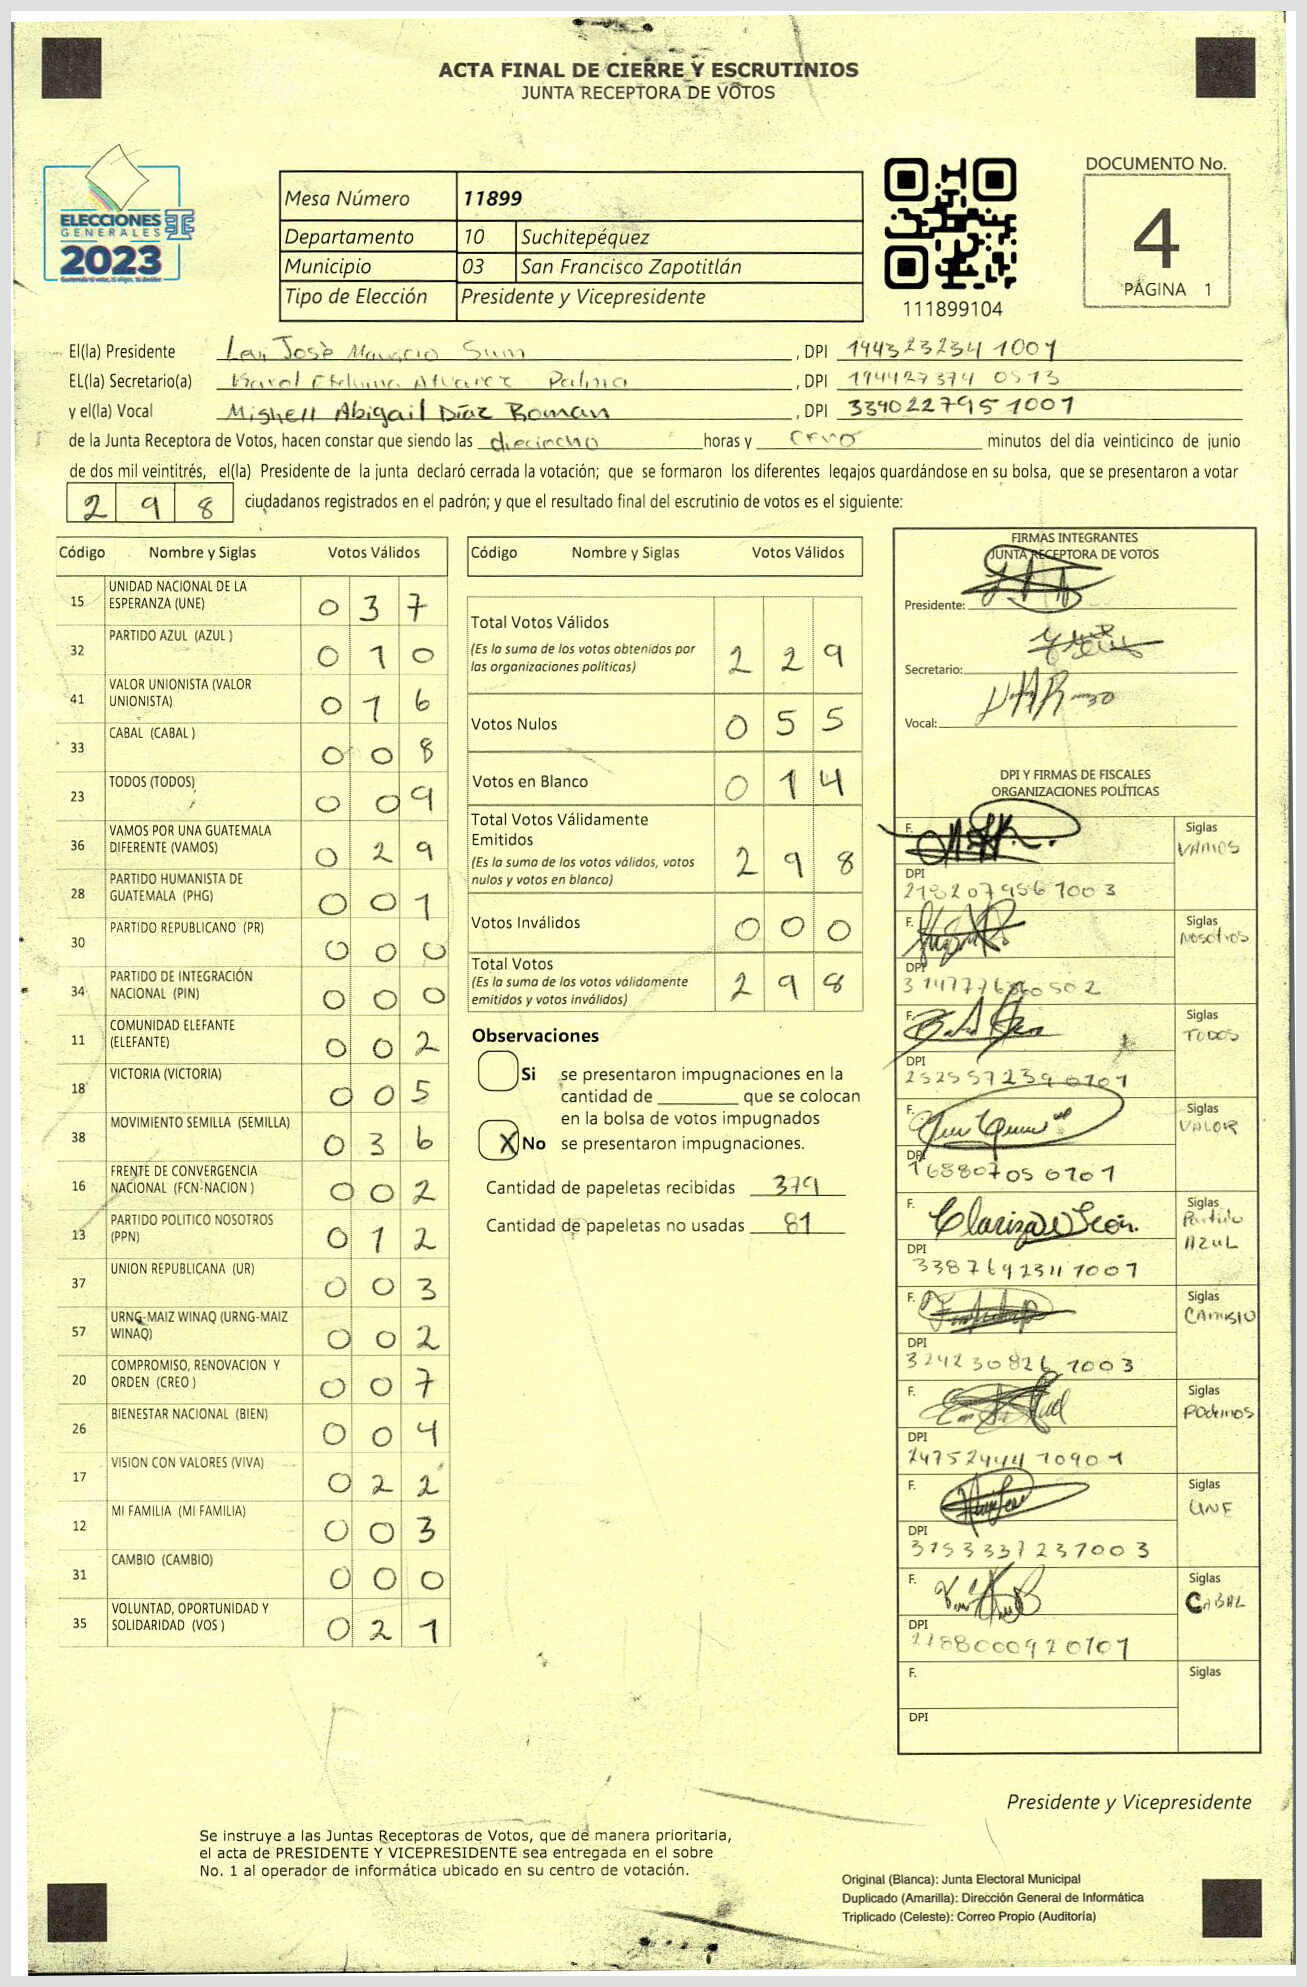 ACTA FINAL DE CIERRE Y ESCRUTINIOS
JUNTA RECEPTORA DE VOTOS
ELECCIONES
GENERALES
2023
Mesa Número 11899
Departamento 10 Suchitepéquez
Municipio 03 San Francisco Zapotitlán
Tipo de Elección Presidente y Vicepresidente
111899104
DOCUMENTO No.
4
PÁGINA 1
El(la) Presidente Levi José Mauricio Sum, DPI 1943232341001
EL(la) Secretario(a) Alvarez Palma, DPI 194427374 0513
y el(la) Vocal Mishell Abigail Díaz Roman, DPI 3390227951001
de la Junta Receptora de Votos, hacen constar que siendo las dieciocho horas y cero minutos del día veinticinco de junio
de dos mil veintitrés, el(la) Presidente de la junta declaró cerrada la votación; que se formaron los diferentes legajos guardándose en su bolsa, que se presentaron a votar
298 ciudadanos registrados en el padrón; y que el resultado final del escrutinio de votos es el siguiente:
Código Nombre y Siglas Votos Válidos
15 UNIDAD NACIONAL DE LA ESPERANZA (UNE) 037
32 PARTIDO AZUL (AZUL ) 010
41 VALOR UNIONISTA (VALOR UNIONISTA) 016
33 CABAL (CABAL ) 008
23 TODOS (TODOS) 009
36 VAMOS POR UNA GUATEMALA DIFERENTE (VAMOS) 029
28 PARTIDO HUMANISTA DE GUATEMALA (PHG) 001
30 PARTIDO REPUBLICANO (PR) 000
34 PARTIDO DE INTEGRACIÓN NACIONAL (PIN) 000
11 COMUNIDAD ELEFANTE (ELEFANTE) 002
18 VICTORIA (VICTORIA) 005
38 MOVIMIENTO SEMILLA (SEMILLA) 036
16 FRENTE DE CONVERGENCIA NACIONAL (FCN-NACION ) 002
13 PARTIDO POLITICO NOSOTROS (PPN) 012
37 UNION REPUBLICANA (UR) 003
57 URNG-MAIZ WINAQ (URNG-MAIZ WINAQ) 002
20 COMPROMISO, RENOVACION Y ORDEN (CREO ) 007
26 BIENESTAR NACIONAL (BIEN) 004
17 VISION CON VALORES (VIVA) 022
12 MI FAMILIA (MI FAMILIA) 003
31 CAMBIO (CAMBIO) 000
35 VOLUNTAD, OPORTUNIDAD Y SOLIDARIDAD (VOS ) 021
Código Nombre y Siglas Votos Válidos
Total Votos Válidos 229
(Es la suma de los votos obtenidos por
las organizaciones políticas)
Votos Nulos 055
Votos en Blanco 014
Total Votos Válidamente
Emitidos 298
(Es la suma de los votos válidos, votos
nulos y votos en blanco)
Votos Inválidos 000
Total Votos 298
(Es la suma de los votos válidamente
emitidos y votos inválidos)
Observaciones
Si se presentaron impugnaciones en la
cantidad de ________ que se colocan
en la bolsa de votos impugnados
X No se presentaron impugnaciones.
Cantidad de papeletas recibidas 379
Cantidad de papeletas no usadas 81
FIRMAS INTEGRANTES
JUNTA RECEPTORA DE VOTOS
Presidente:
Secretario:
Vocal:
DPI Y FIRMAS DE FISCALES
ORGANIZACIONES POLÍTICAS
F. Siglas VAMOS
DPI 2182079561003
F. Siglas Nosotros
DPI
F. Siglas TODOS
DPI 2525572390101
F. Siglas VALOR
DPI 168807050101
F. Clariza de León. Siglas Partido AZUL
DPI 3387692311001
F. Siglas CAMBIO
DPI 3242308261003
F. Siglas Podemos
DPI 2475244410901
F. Siglas UNE
DPI 3153337231003
F. Siglas CABAL
DPI 2188000920101
F. Siglas
DPI
Presidente y Vicepresidente
Se instruye a las Juntas Receptoras de Votos, que de manera prioritaria,
el acta de PRESIDENTE Y VICEPRESIDENTE sea entregada en el sobre
No. 1 al operador de informática ubicado en su centro de votación.
Original (Blanca): Junta Electoral Municipal
Duplicado (Amarilla): Dirección General de Informática
Triplicado (Celeste): Correo Propio (Auditoría)